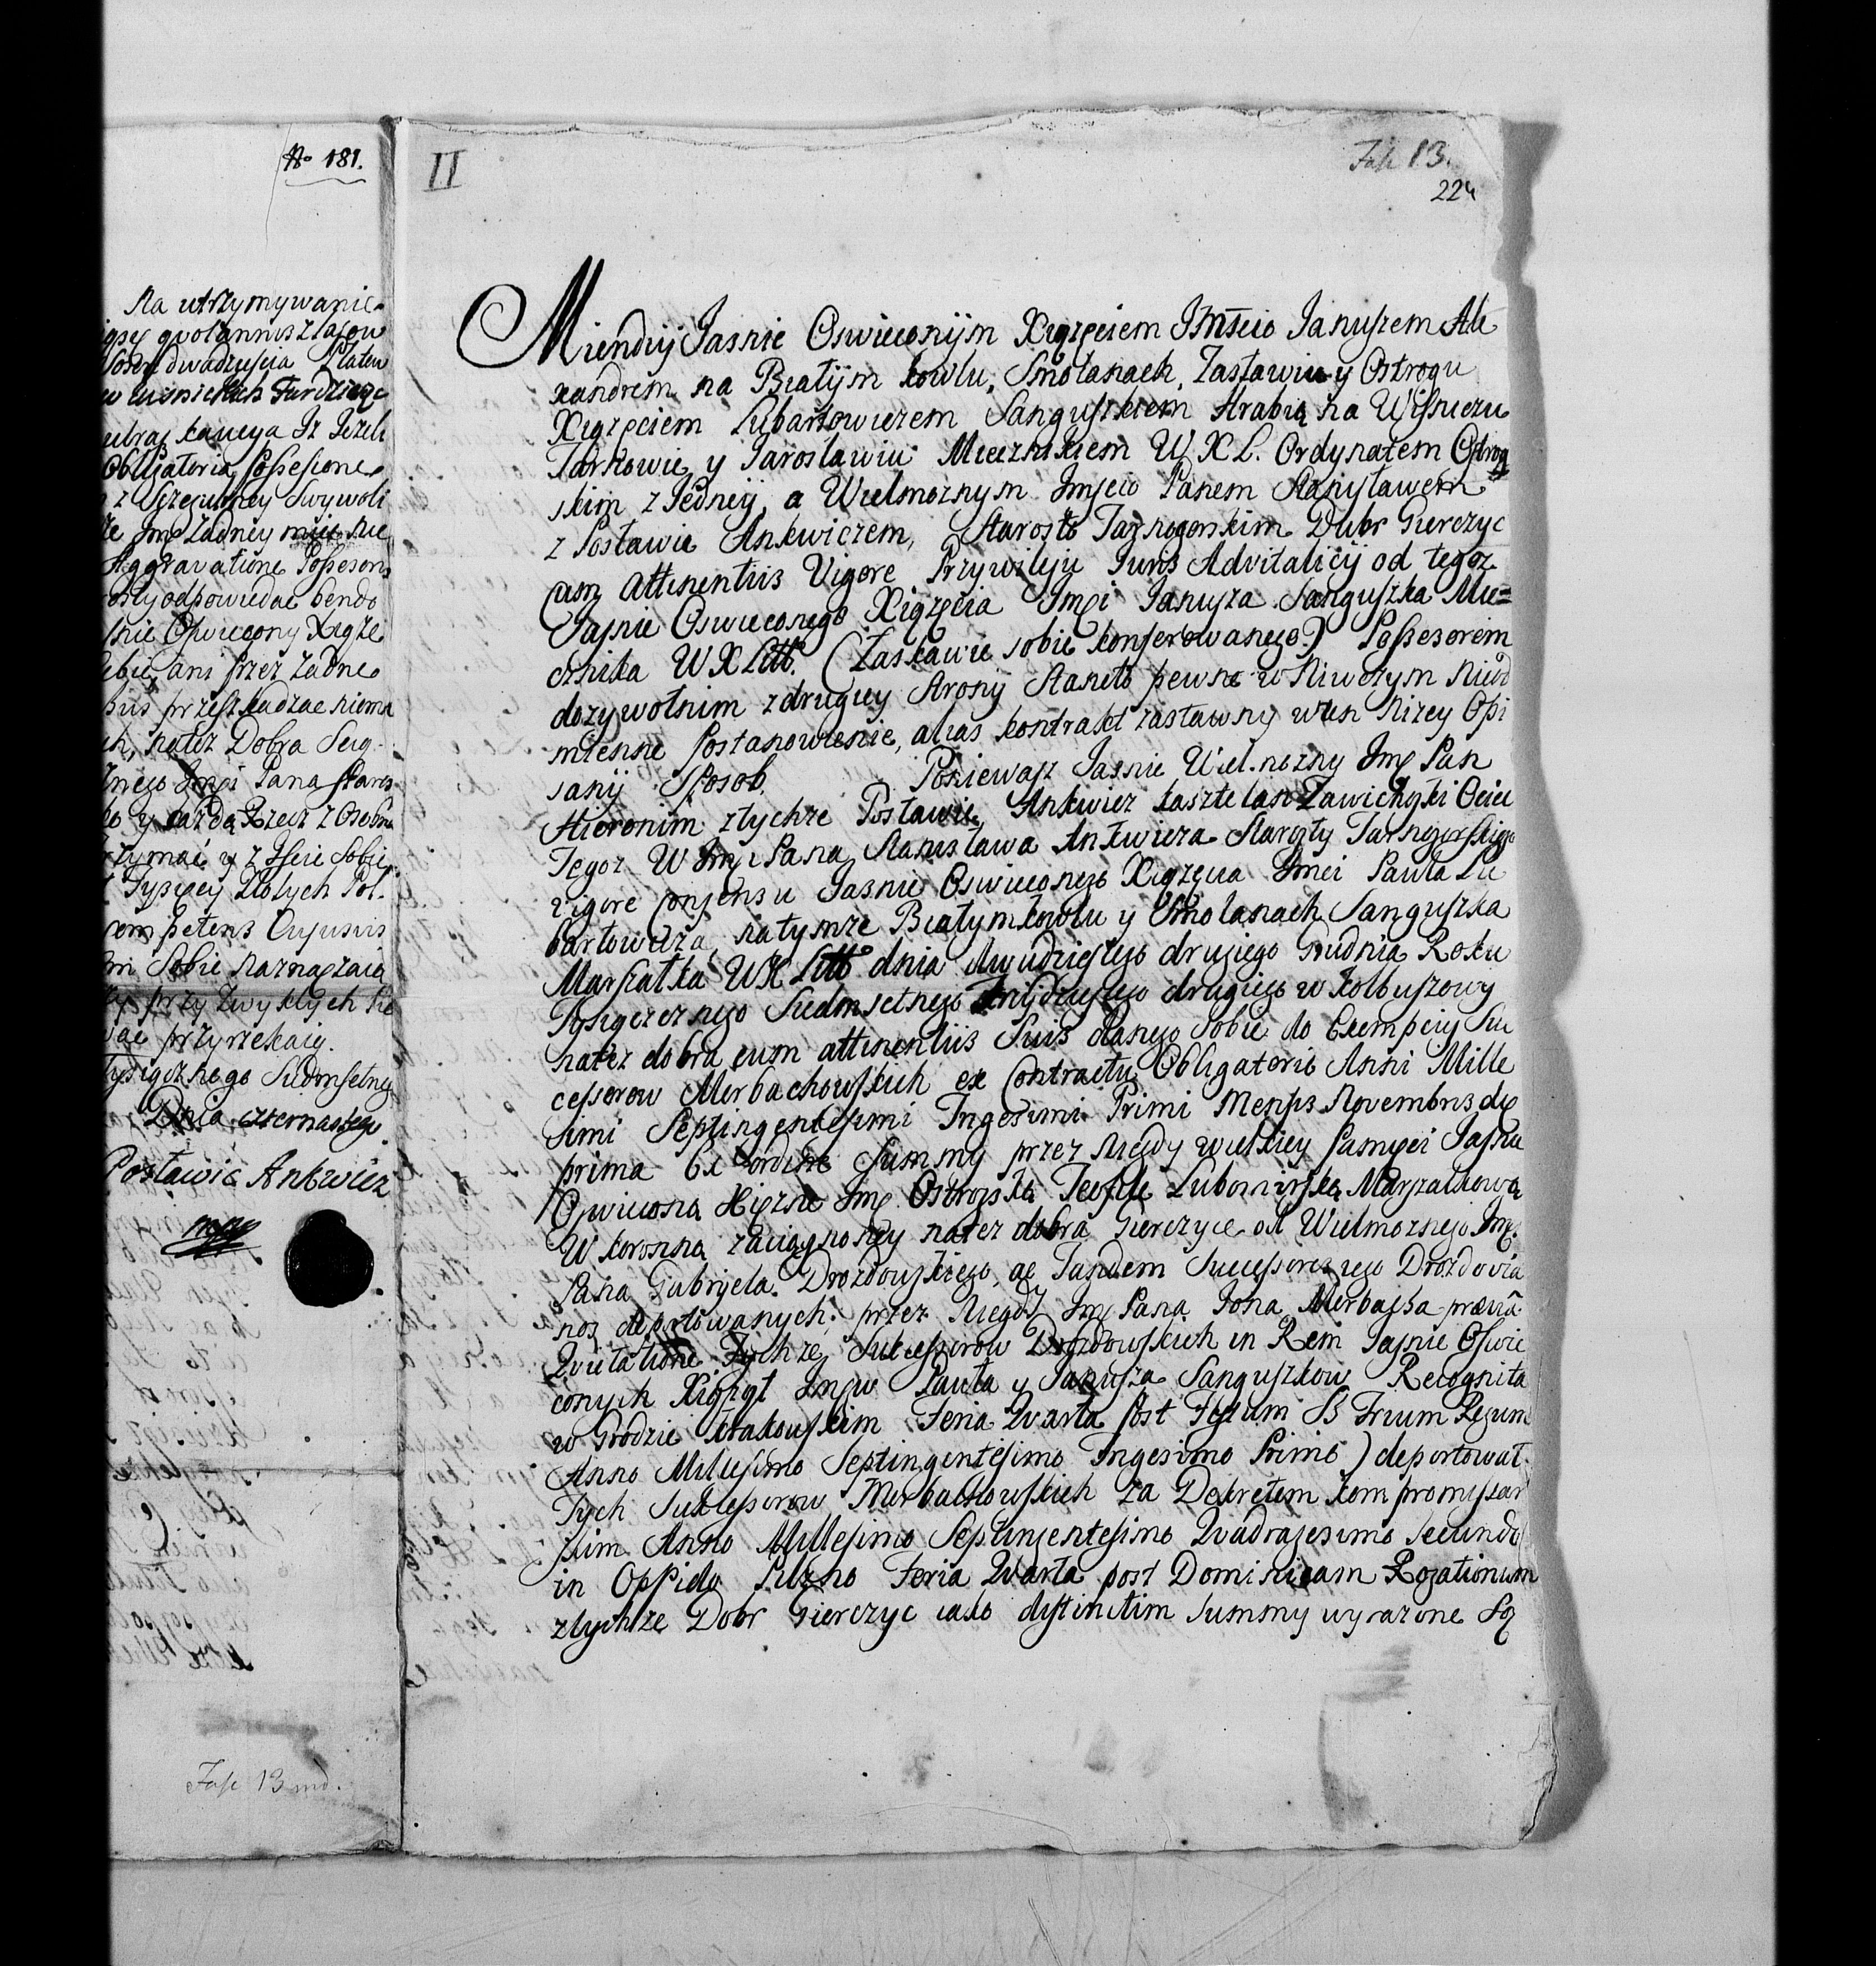 No 181.
Na utrzymywanie
quotannis zlasow
dwadziescia Płatew
w Lusnickich Furdziezc
kaucya Iz Iezeli
Obligatoria Possesione
z Szczegulney Swywoli
Imę Zadney nie
Aggravatione Possesoris
odpowiedac bendo
snie Oswiecony Xiąże
ani przez Zadne
przeszkadzac niema
natez Dobra
Imsci Pana Staros
y kazdą Rzecz z Osobna
trzymac y z Iscic sobie
Tysięcy Złotych Pol.
competens Cujusvis
Sobie naznaczaią
przy Zwykłych
przyrzekaią.
Tysiącznego Siedmsetneg
Dnia czternastego
Postawic Ankwicz
mpp
Fasc 13 md.
II
Fasc 13.
224
Miendzij Jasnie Oswieconijm Xiązęciem JMscio Januszem Ale
xandrem na Białijm Kowlu, Smolanach, Zasławiu y Ostrogu
Xiązęciem Lubartowiczem Sanguszkiem Hrabią na Wisniczu
Tarnowie y Iarosławiu Miecznikiem W X L. Ordynatem Ostrog
skim z Iednéij, a Wielmoznym Imscio Panem Stanisławem
z Posławic Ankwiczem, Starosto Tarnogorskim Dubr Gierczyc
cum attinentiis Vigore Przywileju Juris Advitalicij od tegoz
Jasnie Oswieconego Xiązęcia Jmci Janusza Sanguszka Mie=
cznika W X Litt° (Łaskawie sobie konferowanego) Possesorem
dozywotnim z drugiey strony staneło pewne w Niwczym nieod
mienne Postanowienie, alias kontrakt zastawny wten nizey Opi
sanij Sposob. Poniewasz Jasnie Wielmozny Imę Pan
Hieronim ztychze Posławic Ankwicz kasztelan Zawichoski Ociec
Tegoz W Jmci Pana Stanisława Ankwicza Starosty Tarnogorskiego
vigore Consensu Jasnie Oswieconego Xiązęcia Jmci Pawła Lu
bartowicza, natymze Białymkowlu y Smolanach Sanguszka
Marszałka WX Litt° dnia dwudziestego drugiego Grudnia Roku
Tysiącznego Siedmsetnego Trzijdziestego drugiego w Kolbuszowy
natez dobra cum attinentiis Suis danego Sobie do Exempcij Suc
cessorow Morbachowskich ex Contractu Obligatorio Anni Mille
simi Septingentesimi Trigesimi Primi Mensis Novembris die
prima Ex ordine Summy przez niegdy wielkiey Pamięci Jasnie
Oswieconą Xiężne Imę Ostrogską Teofile Lubomirską Marszałkową
W koronną zaciągnoney natez dobra Gierczyce od Wielmoznego Imę
Pana Gabryela Drozdowskiego, ac Tandem Successorczego Drozdowia
noz deportowanych przez niegdy Imę Pana Jona Morbacha prævia
Quietatione Tychze Sukcessorow Drozdowskich in Rem Jasnie Oswie
conych Xiąząt Imsciow Pawła y Janusza Sanguszkow Recognita
w Grodzie Krakowskim Feria Quarta post Festum SS Trium Regum
Anno Millesimo Septingentesimo Trigesimo Primo) deportował
Tych Sukcessorow Morbachowskich za Dekretem kompromissar
skim Anno Millesimo Septingentesimo Quadragesimo Secundo
in Oppido Pilzno Feria Quarta post Dominicam Rogationum
ztychze Dobr Gierczyc iako distinctim summy wyrazone są